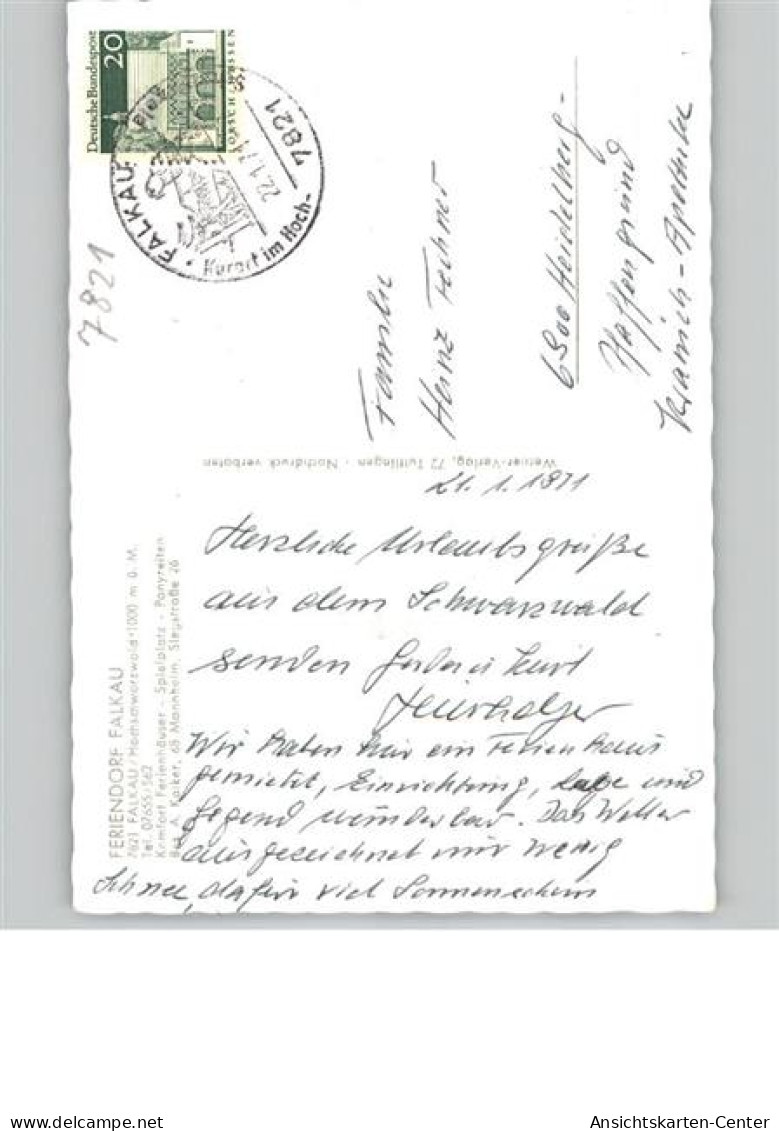 Deutsche Bundespost
20
LORSCH / HESSEN
FALKAU
22.1.71
7821
Kurort im Hoch-
7821
Familie
Heinz Fechner
6900 Heidelberg-
Pfaffengrund
Kranich-Apotheke
Werner-Verlag, 72 Tuttlingen - Nachdruck verboten
FERIENDORF FALKAU
7821 FALKAU/Hochschwarzwald · 1000 m ü. M.
Tel. 07655/562
Komfort Ferienhäuser - Spielplatz - Ponyreiten
Bes. A. Kaiker, 68 Mannheim, Siegstraße 26
21. 1. 1971
Herzliche Urlaubsgrüße
aus dem Schwarzwald
senden Kurt
Wir haben hier ein Ferienhaus
gemietet, Einrichtung, Lage und
Gegend wunderbar. Das Wetter
ausgezeichnet nur wenig
Schnee, dafür viel Sonnenschein
Ansichtskarten-Center